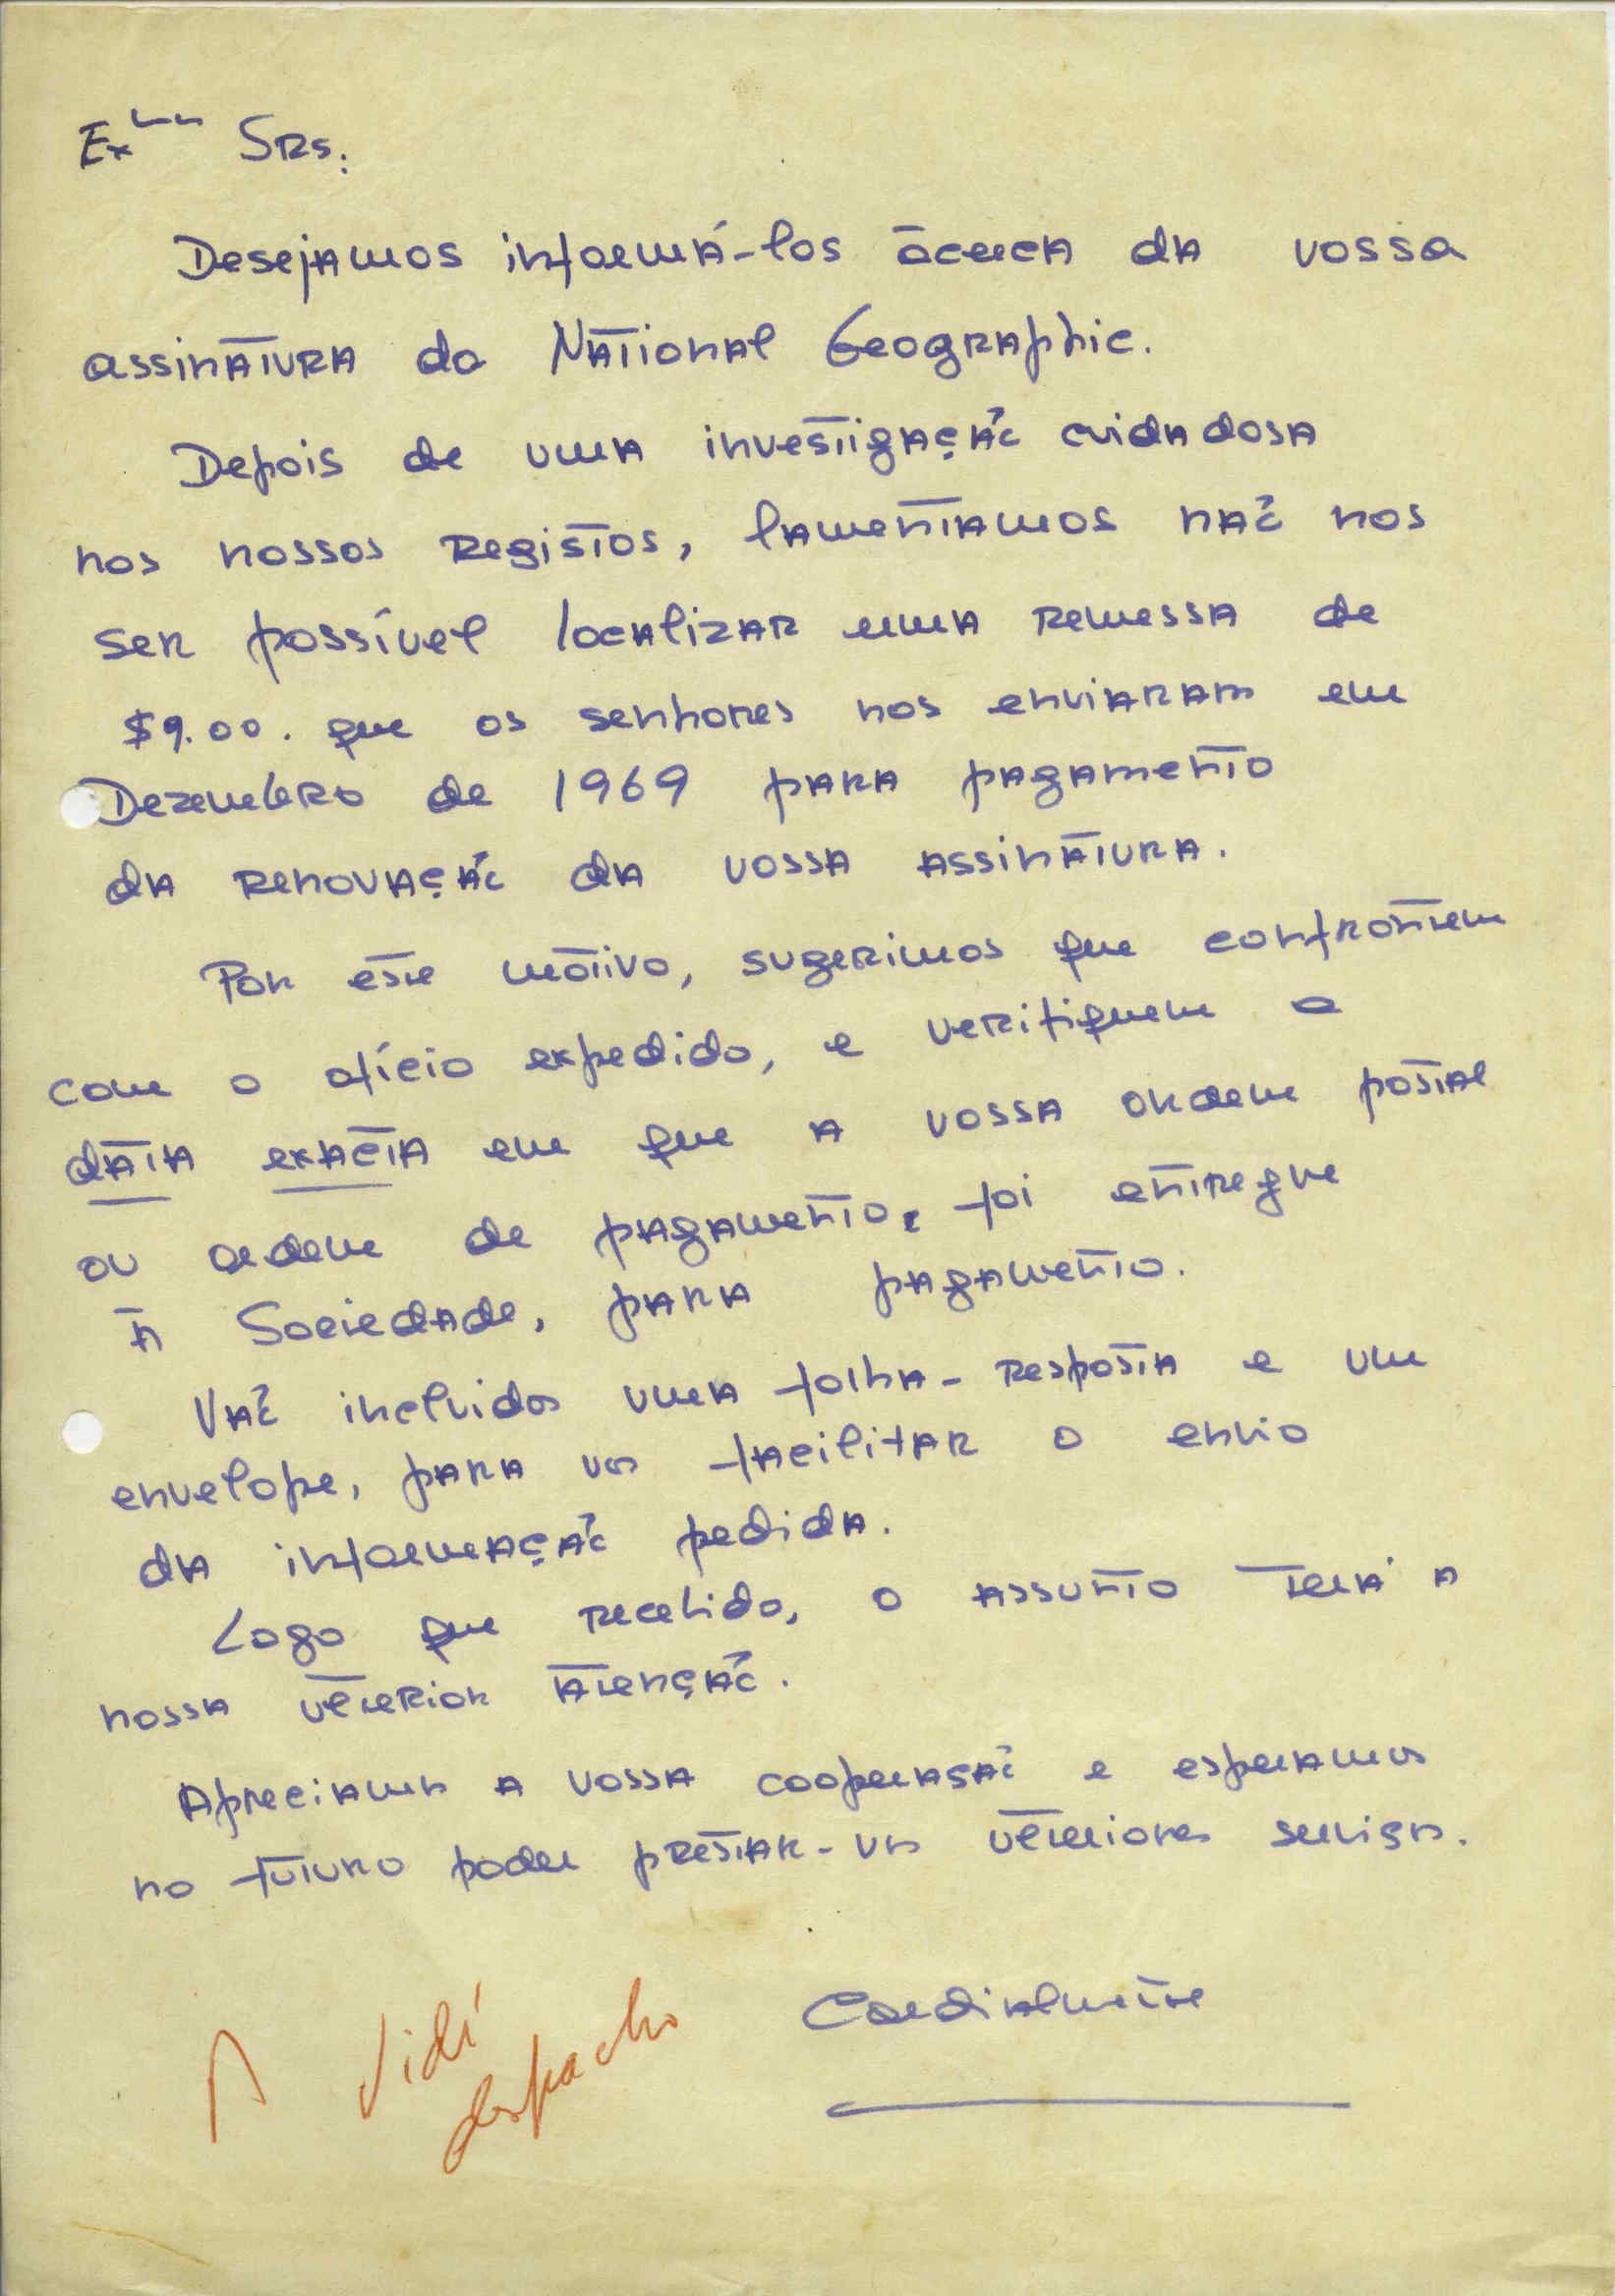 Exmos Srs.
Desejamos informá-los àcerca da vossa
assinatura do National Geographic.
Depois de uma investigação cuidadosa
nos nossos registos, lamentamos não nos
ser possível localizar uma remessa de
$9.00. que os senhores nos enviaram em
Dezembro de 1969 para pagamento
da renovação da vossa assinatura.
Por este motivo, sugerimos que confrontem
com o ofício expedido, e verifiquem a
data exacta em que a vossa ordem postal
ou ordem de pagamento, foi entregue
à Sociedade, para pagamento.
Vão incluidos uma folha-resposta e um
envelope, para vos facilitar o envio
da informação pedida.
Logo que recebido, o assunto terá a
nossa ulterior atenção.
Apreciamos a vossa cooperação e esperamos
no futuro poder prestar-vos ulteriores serviços.
Cordialmente
A Vidí
despacho